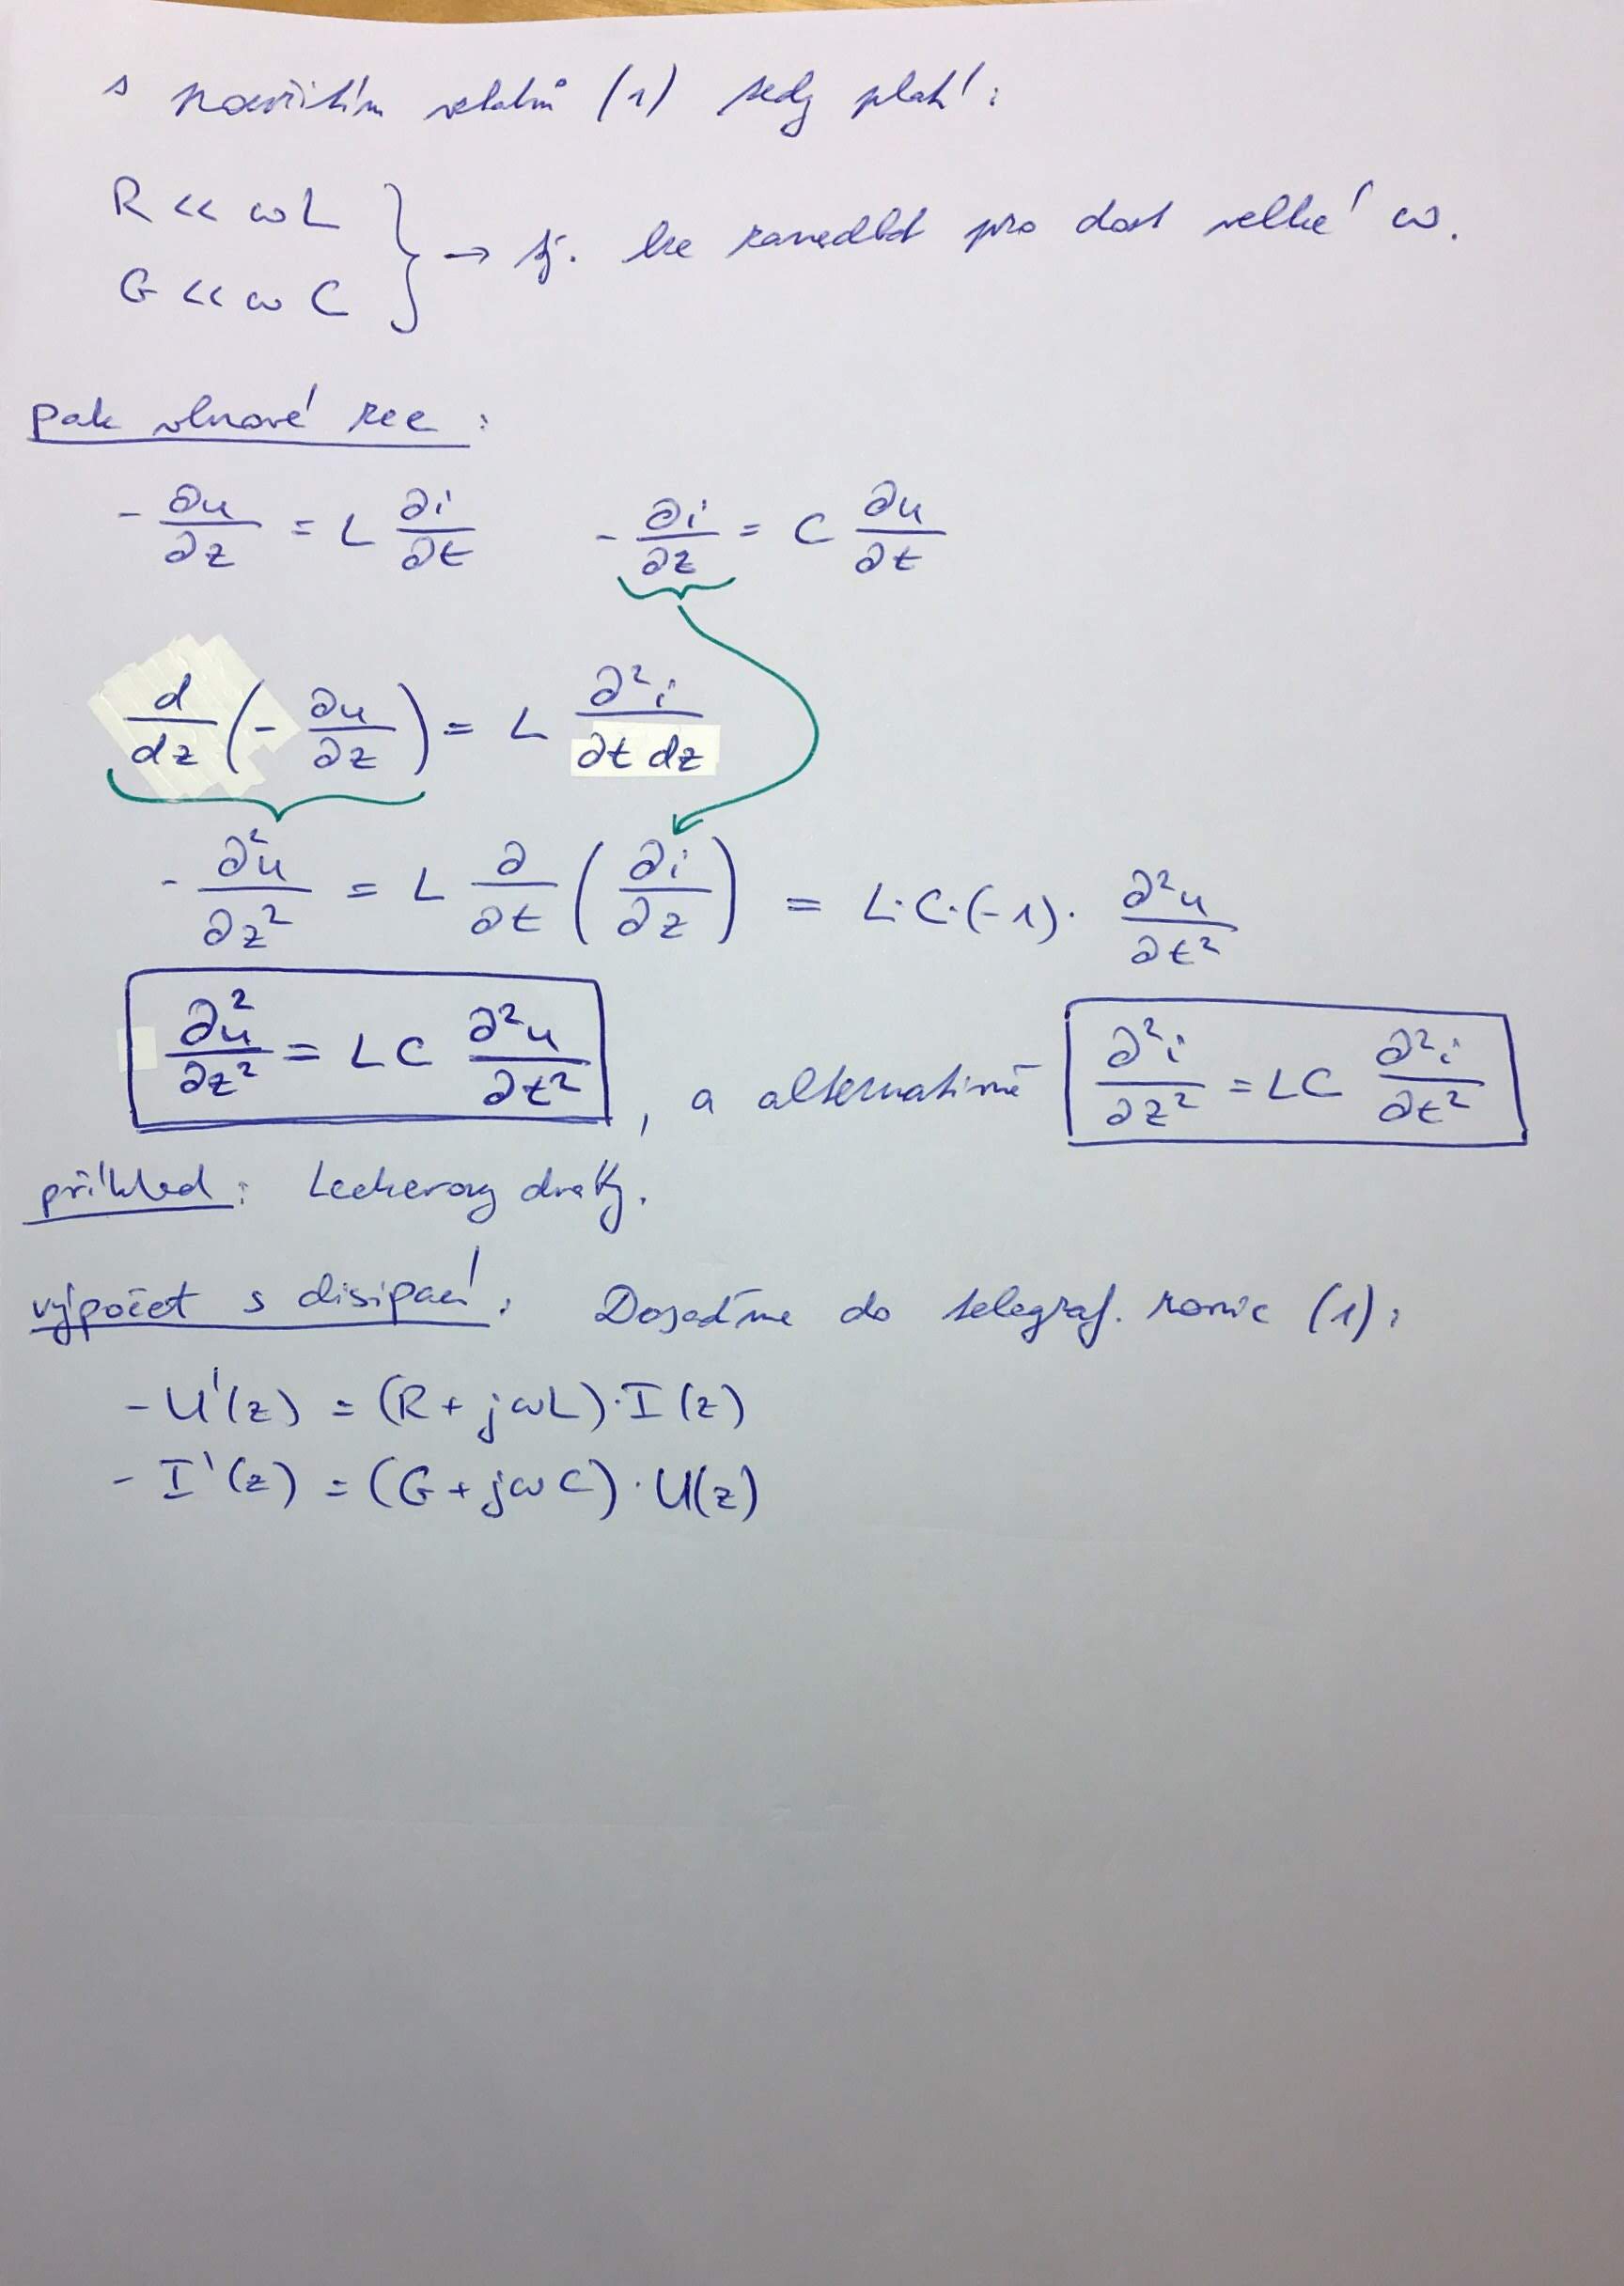 s použitím vztahů (1) tedy platí:
R << ωL
G << ωC } → tj. lze zanedbat pro dost velké ω.
pak vlnové rce:
- ∂u/∂z = L ∂i/∂t   - ∂i/∂z = C ∂u/∂t
d/dz (- ∂u/∂z) = L ∂²i/∂t dz
- ∂²u/∂z² = L ∂/∂t (∂i/∂z) = L·C·(-1)· ∂²u/∂t²
∂²u/∂z² = LC ∂²u/∂t² , a alternativně ∂²i/∂z² = LC ∂²i/∂t²
příklad: Lecherovy dráty.
výpočet s disipací: Dosaďme do telegraf. rovnic (1):
- U'(z) = (R + jωL)·I(z)
- I'(z) = (G + jωC)·U(z)